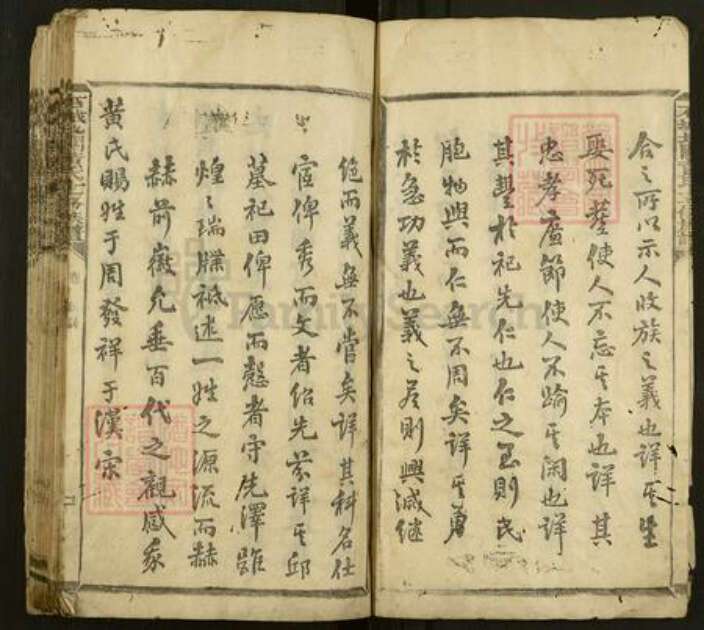 合之所以示人收族之義也詳其生
娶死葬使人不忘其本也詳其
忠孝廉節使人不踰其閑也詳
其豐於祀先仁也仁之至則民
胞物與而仁無不周矣詳其勇
於急功義也義之善則興滅繼
絶而義無不嘗矣詳其科名仕
宦俾秀而文者紹先芬詳其邱
墓祀田俾愿而慤者守先澤雖
煌煌瑞牒祗述一姓之源流而赫
赫前徽允垂百代之觀感家
黃氏賜姓于周發祥于漢宗
FamilySearch